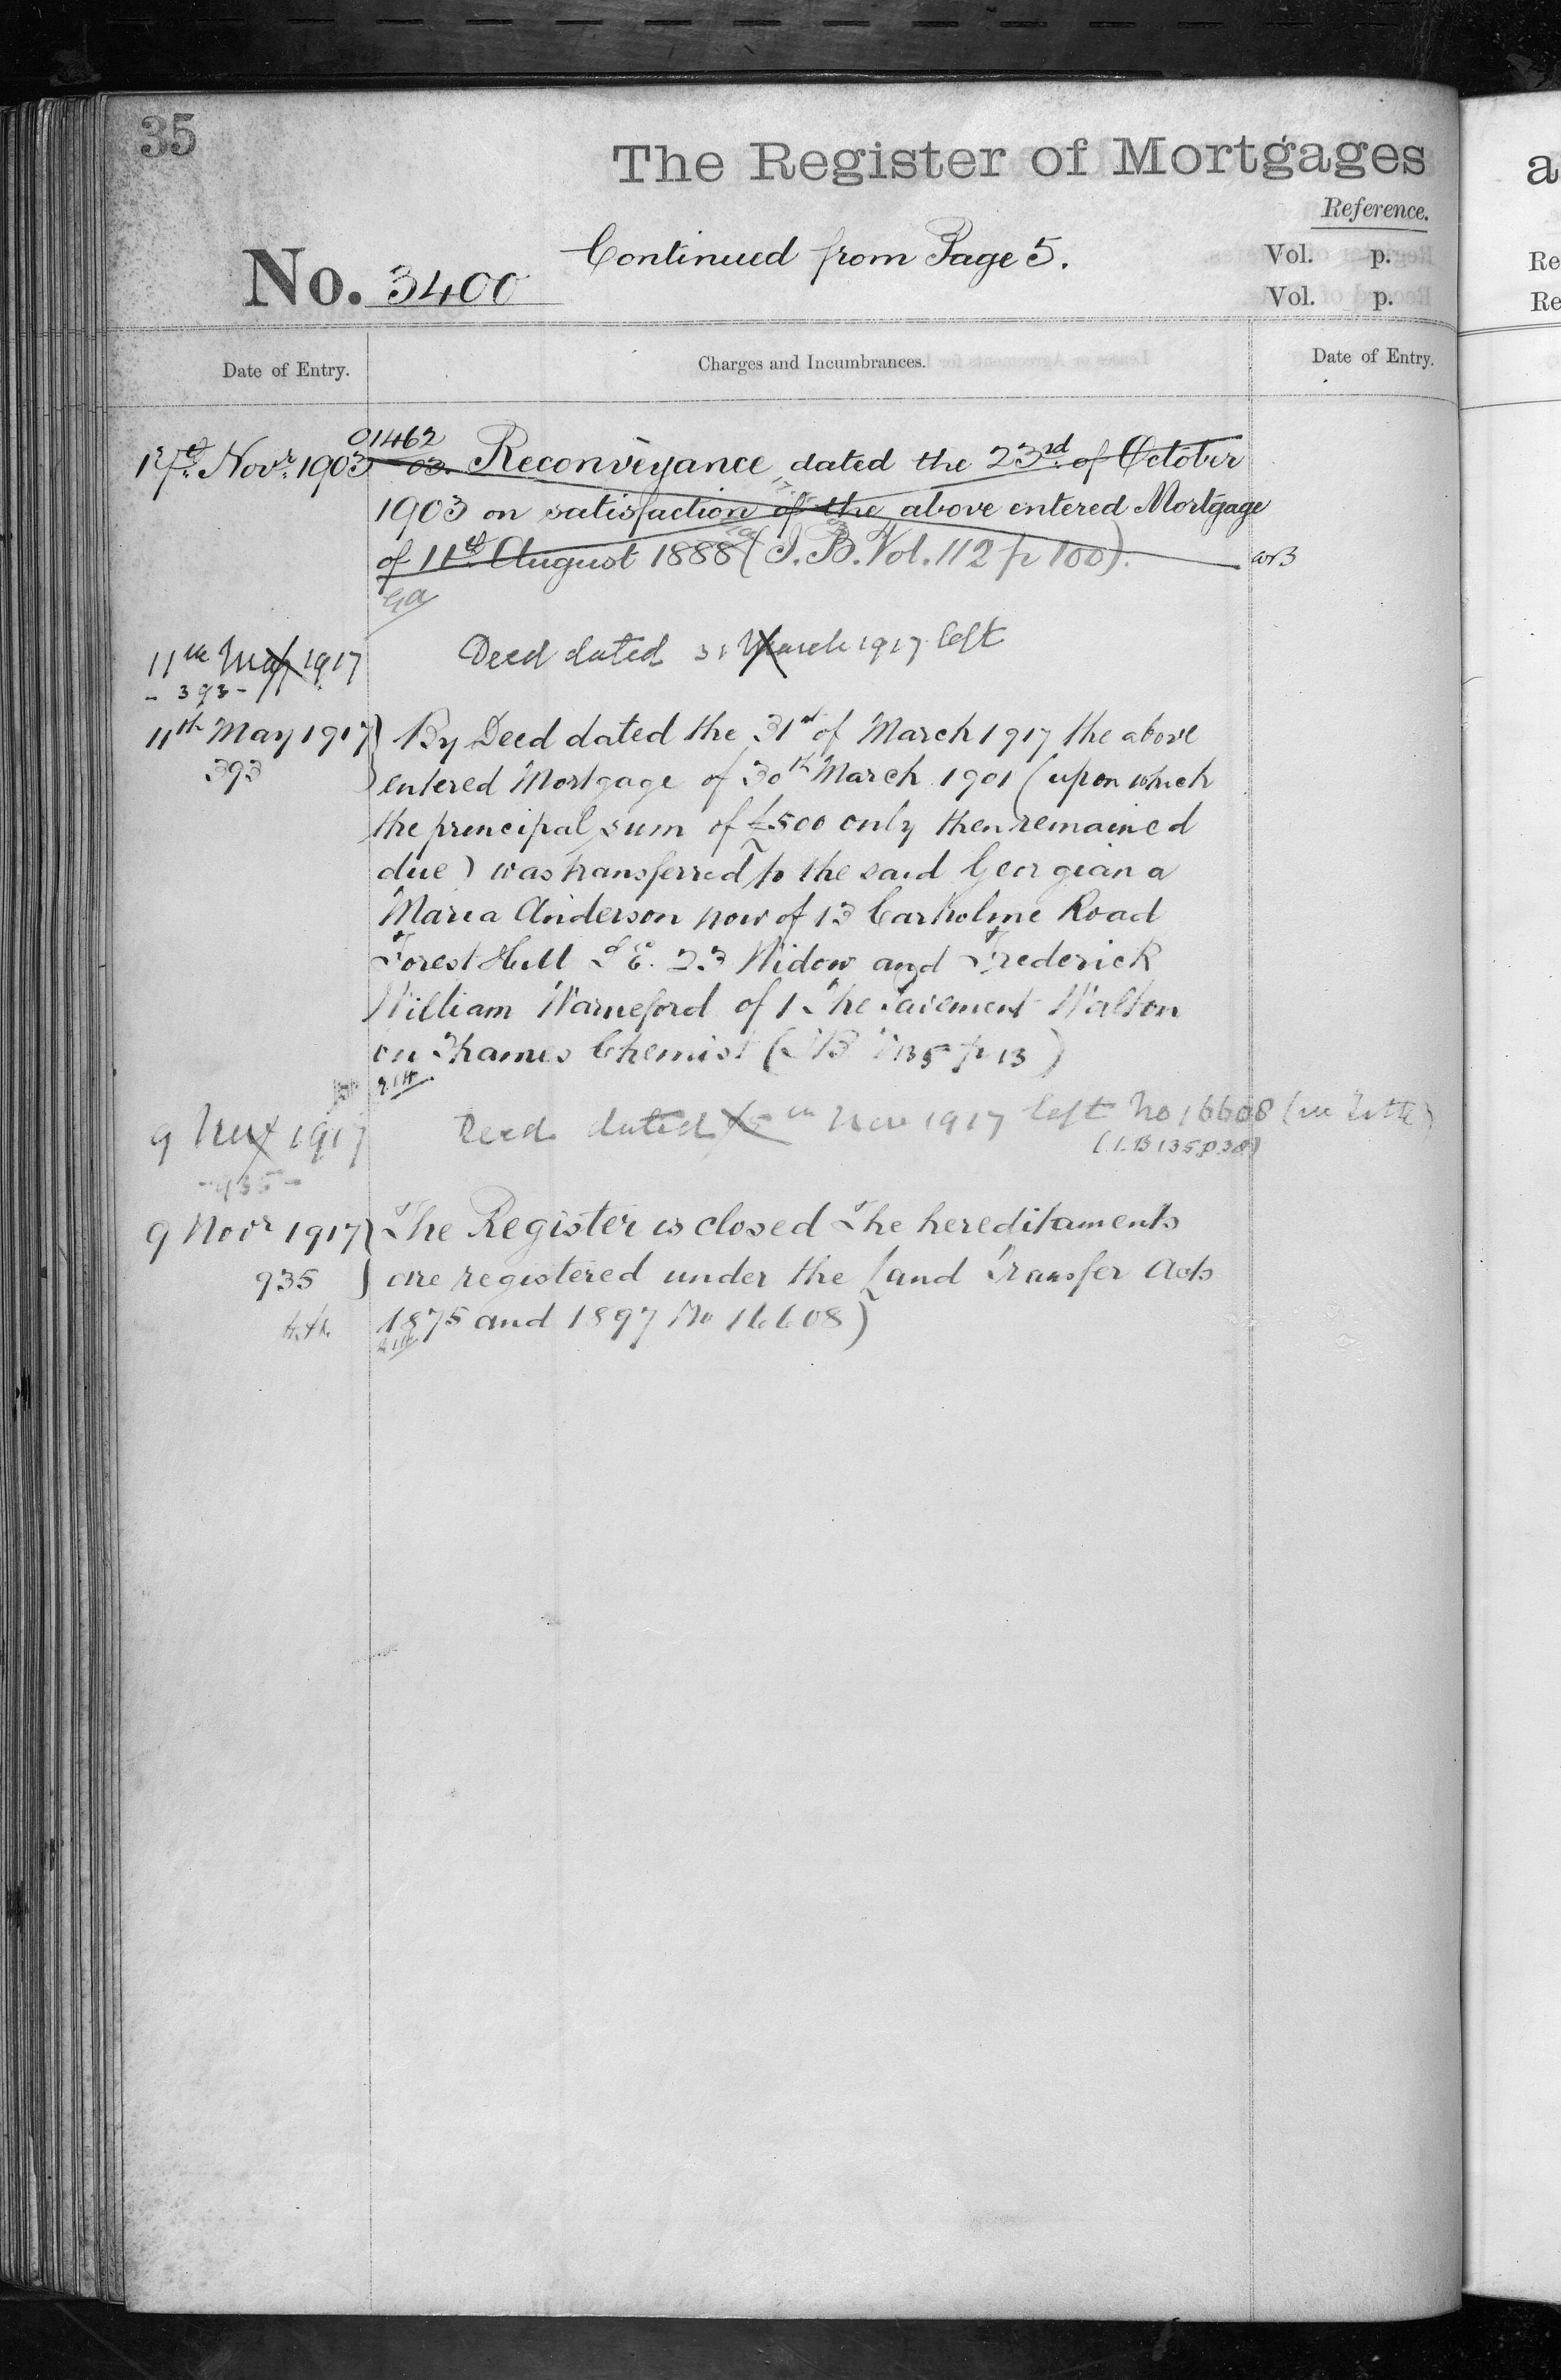 35
The Register of Mortgages
Reference.
No. 3400
Continued from Page 5.
Vol. p.
Vol. p.
Date of Entry.
Charges and Incumbrances.
Date of Entry.
01462
17th Novr. 1903 03. Reconveyance dated the 23rd of October
1903 on satisfaction of the above entered Mortgage
of 11th August 1888 (I.B. Vol. 112 p 100).
11th May 1917 Deed dated 31 March 1917 left
- 393 -
11th May 1917) By Deed dated the 31st of March 1917 the above
393 ) entered Mortgage of 30th March 1901 (upon which
the principal sum of £500 only then remained
due) was transferred to the said Georgiana
Maria Anderson now of 13 Carholme Road
Forest Hill S.E. 23 Widow and Frederick
William Warneford of 1 The Pavement Walton
on Thames Chemist (I B V 135 p 13)
9 Nov 1917 Deed dated 5th Nov 1917 left No 16608 (in Title)
(I.B 135 p 38)
- 935 -
9 Novr 1917) The Register is closed The hereditaments
935 ) are registered under the Land Transfer Acts
1875 and 1897 No 16608)
a
Re
Re